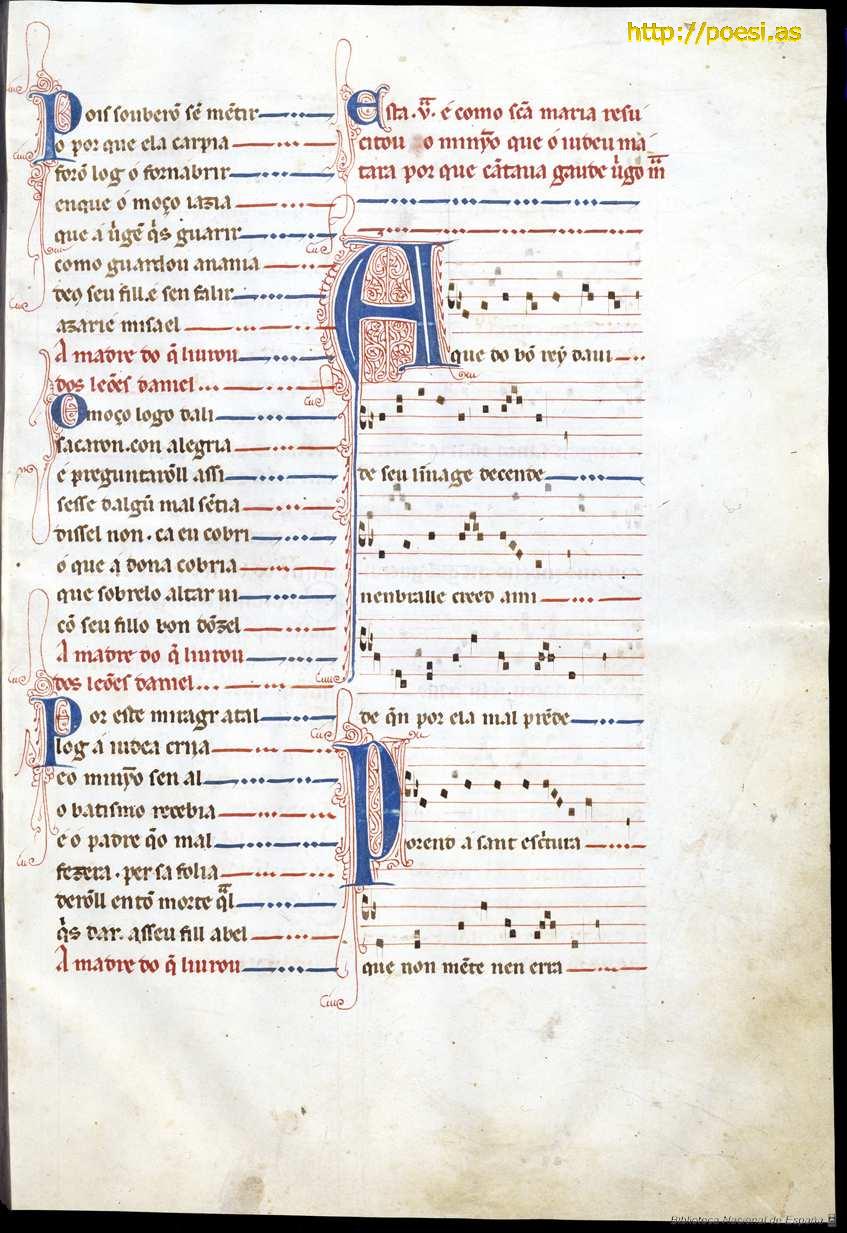 http://poesi.as
Pois souberõ sẽ mẽtir
o por que ela carpia
forõ log o fornabrir
enque o moço iazia
que a ũgẽ q̃s guarir
como guardou anania
deꝯ seu fill. e sen falir
azarie misael
A madre do q̃ liurou
dos leões daniel
O moço logo dali
sacaron. con alegria
e preguntarõll assi
sesse dalgũ mal sẽtia
dissel non. ca eu cobri
o que a dona cobria
que sobrelo altar ui
cõ seu fillo bon dõzel
A madre do q̃ liurou
dos leões daniel
Por este miragr atal
log a iudea criya
eo minỹo sen al
o batismo recebia
e o padre q̃o mal
fezera. per sa folia
derõll entõ morte q̃l
q̃s dar. asseu fill abel
A madre do q̃ liurou
Esta .v̄. e como scã maria resu
citou o minỹo que o iudeu ma
tara por que cãtaua gaude ũgo m̃
A que do bõ rey daui
de seu lĩnage decende
nenbralle creed ami
de q̃n por ela mal prẽde
Porend a sant escritura
que non mẽte nen erra
Biblioteca Nacional de España